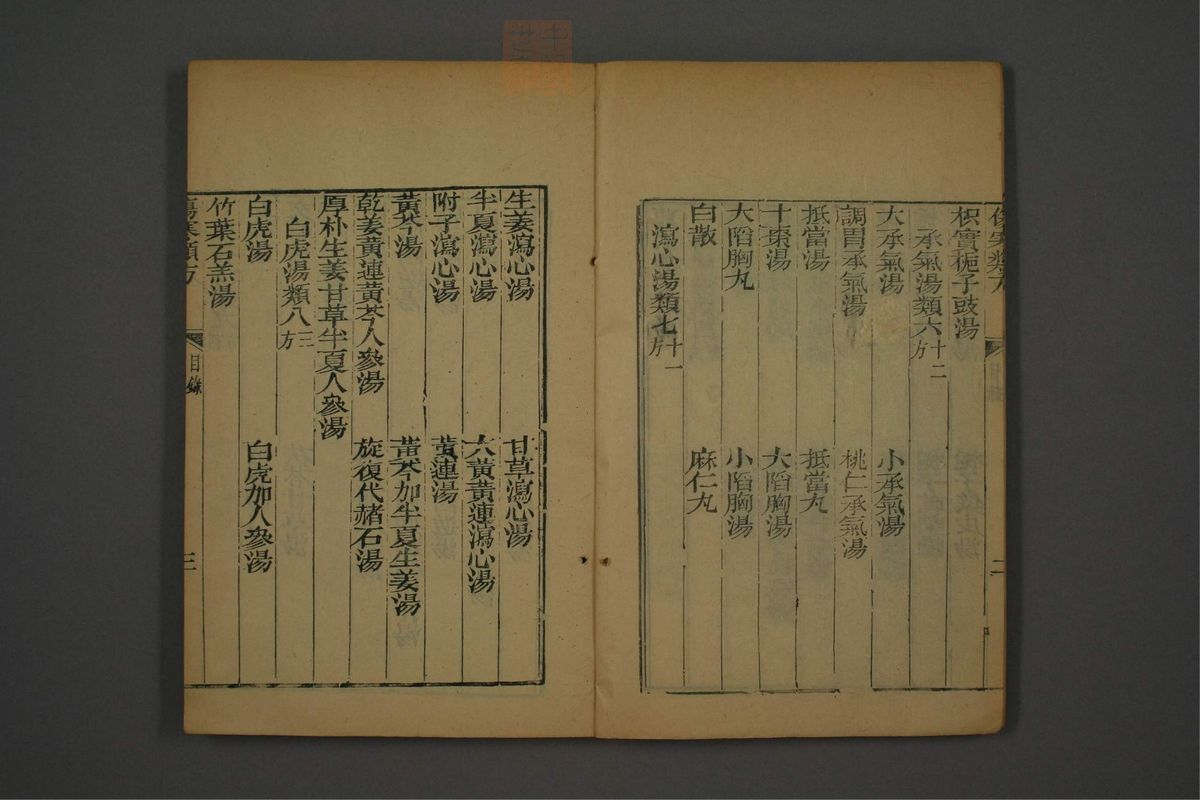 傷寒類方
二
枳實梔子豉湯
承氣湯類六 十二方
大承氣湯 小承氣湯
調胃承氣湯 桃仁承氣湯
抵當湯 抵當丸
十棗湯 大陷胸湯
大陷胸丸 小陷胸湯
白散 麻仁丸
瀉心湯類七 十一方
生姜瀉心湯 甘草瀉心湯
半夏瀉心湯 大黃黃連瀉心湯
附子瀉心湯 黃連湯
黃芩湯 黃芩加半夏生姜湯
乾姜黃連黃芩人參湯 旋復代赭石湯
厚朴生姜甘草半夏人參湯
白虎湯類八 三方
白虎湯 白虎加人參湯
竹葉石羔湯
傷寒類方 目錄 三